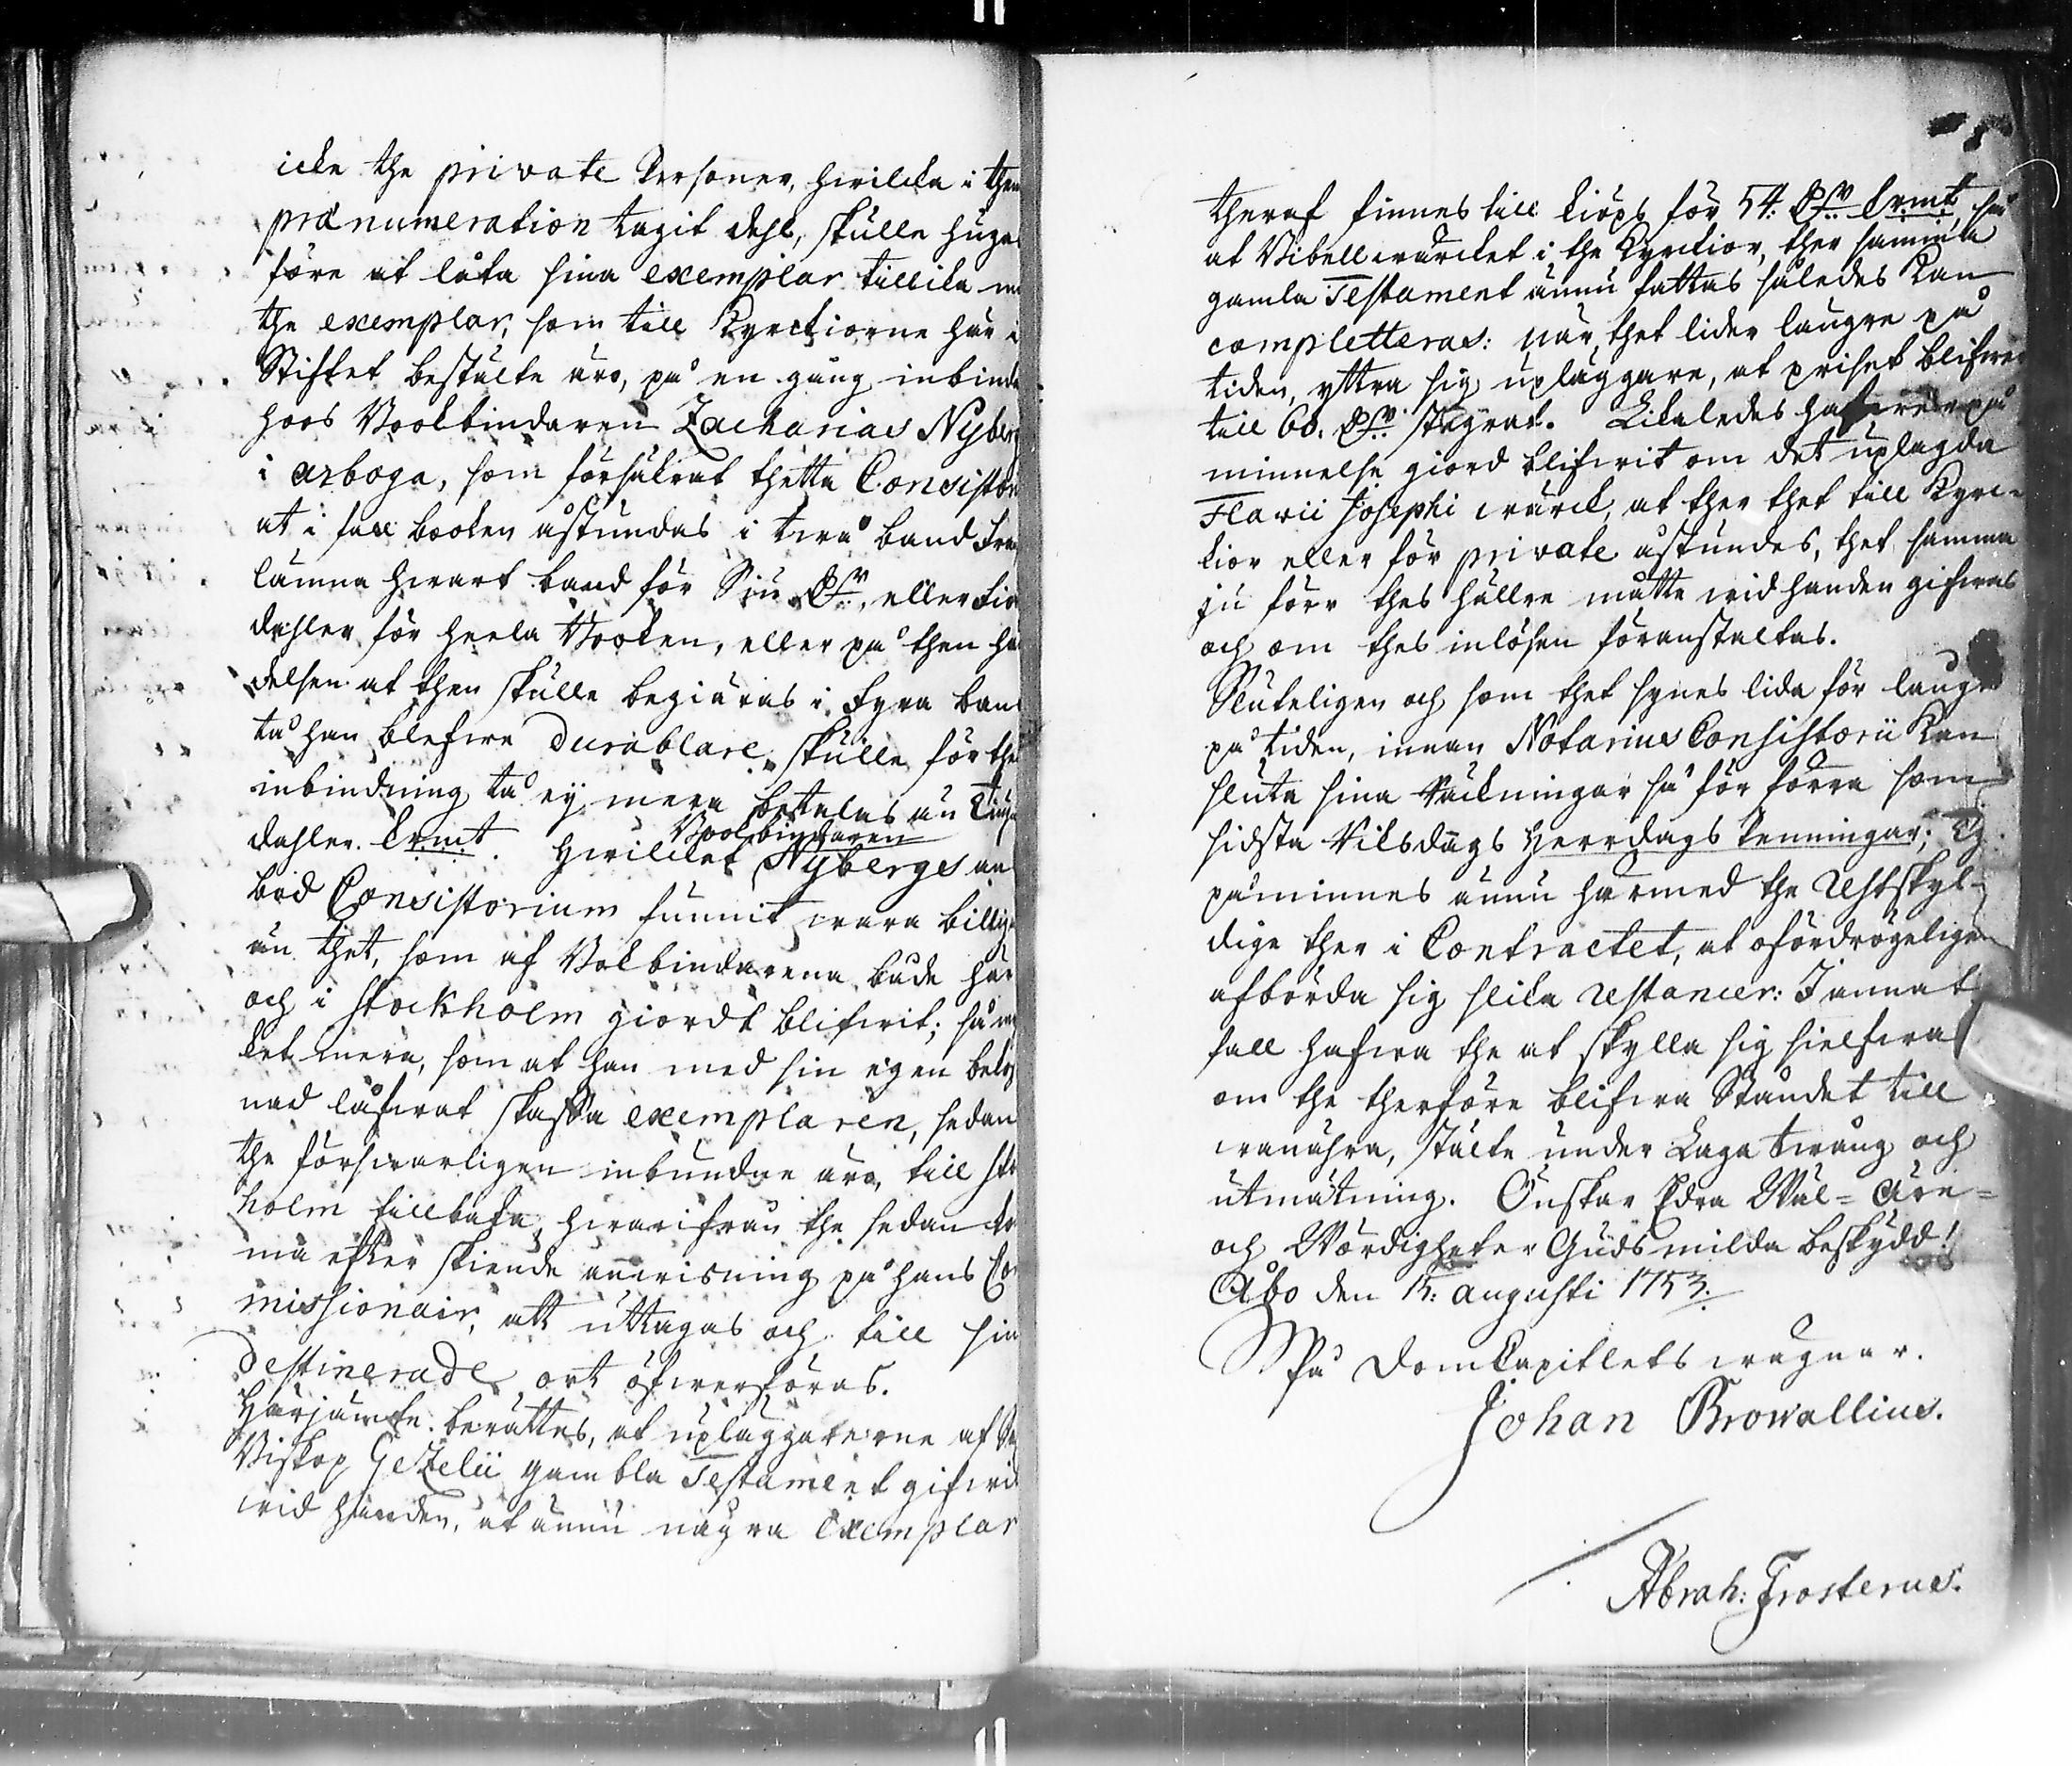 icke the private Personer, hwilcka i then
prænumeration tagit dehl, skulle huga
före at låta sina exemplar tillika me
the exemplar, som till Kyrckiorne här i
Stiftet bestälte äro, på en gång inbinda
hoos Bookbindaren Zacharias Nyberg
i Arboga, som försäkrat thetta Consistor
at i fall booken åstundas i twå band
lämna hwart band för Siu Dlr, eller
dahler för heela Booken, eller på then hä
delsen at then skulle begiäras i fyra ban
tå han blefwe durablare, skulle för the
inbindning tå ej mera betalas än Tiugu
Bookbindaren
dahler Kpmt. Hwilcket Nyberges an
bod Consistorium funnit wara billiga
än thet, som af Bokbindarena både här
och i Stockholm giordt blifwit; så my
ket mera, som at han med sin egen bekås
nad låfwat skaffa exemplaren, sedan
the förswarligen inbundne äro, till Sto
holm tillbaka, hwarifrån the sedan ko
ma efter skiende anwisning på hans Co
missionair, att uttagas och till sin
destinerade ort öfwerföras.
Härjämte berättes, at upläggarerne af
Biskop Gezelii gambla Testament gifwit
wid handen, at ännu några Exemplar
theraf finnes till kiöps för 54: Dlr Kpmt, så
at Bibelwärcket i the Kyrckior, ther samma
gamla Testament ännu fattas således kan
completteras: när thet lider längre på
tiden, yttra sig upläggare, at priset blifwer
till 60. Dlr stegrat. Likaledes hafwer på
minnelse giord blifwit om det uplagda
Flavii Josephi wärck, at ther thet till Kyrc-
kior eller för private åstundes, thet samma
ju förr thes hällre måtte wid handen gifwas
och om thes inlösen föranstaltas.
Sluteligen och som thet synes lida för långt
på tiden, innan Notarius Consistorii kan
sluta sina Räckningar så för förra som
sidsta Riksdags Herrdags Penningar; Ty
påminnes ännu härmed the Restskyl-
dige ther i Contractet, at ofördrögeligen
afbörda sig slika Restancer: I annat
fall hafwa the at skylla sig sielfwa
om the therföre blifwa Ståndet till
wanähra, stälte under Laga twång och
utmätning. Önskar Edra Wäl- Äre-
och Wördigheter Guds milda beskydd!
Åbo den 15: Augusti 1753.
På Domkapitlets wägnar.
Johan Browallius.
Abrah: Frosterus.